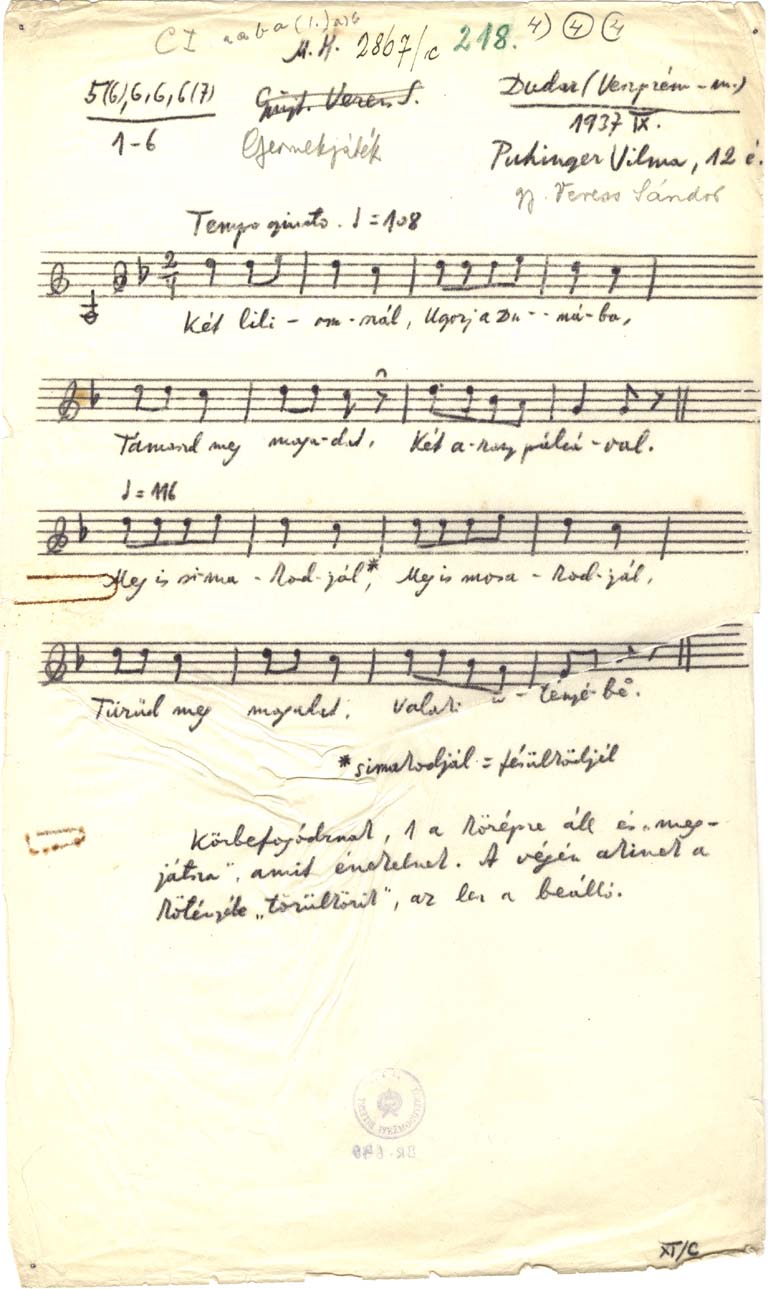 C I a a b a
M.H. 2867/c 218. 4) 4 4
5(6),6,6,6(7) Gyüjt. Veress S. Dudar (Veszprém-m.)
1-6 Gyermekjáték 1937 IX.
Puhinger Vilma, 12 é.
gy. Veress Sándor
Tempo giusto. ♩=108
2/4
Két lili - om-szál, Ugorj a Du - - ná-ba,
Támaszd meg maga-dat, Két a-rany pálcá-val.
♩=116
Meg is si-ma - kod-jál*, Meg is mosa - kod-jál,
Türüd meg magadat, Valaki kö-tenyé-bë.
*simakodjál = fésülködjél
Körbefogódznak, 1 a középre áll és „meg-
játsza", amit énekelnek. A végén akinek a
kötényébe „törülközik", az lesz a beálló.
XI/C